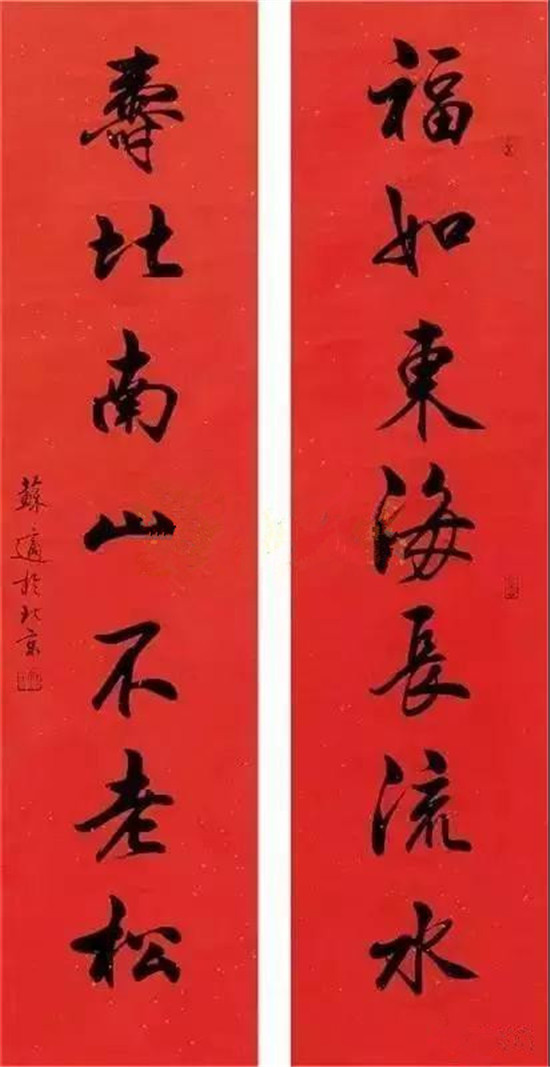 福如東海長流水
壽比南山不老松
蘇適於北京